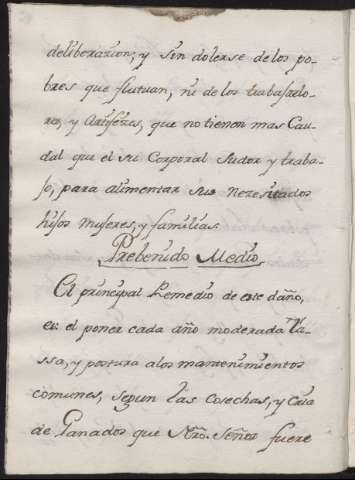 deliberazion; y sin dolerse de los po-
bres que flutuan, ni de los trabajado-
res, y Artifizes, que no tienen mas Cau-
dal que el su Corporal Sudor y traba-
jo, para alimentar sus Nezesitados
hijos Mujeres, y familias.
Prebenido Medio.
El principal Remedio de este daño,
es el poner cada año moderada Ta-
ssa, y postura a los mantenimientos
comunes, segun las Cosechas, y Cria
de Ganados que Nro. Señor fuere